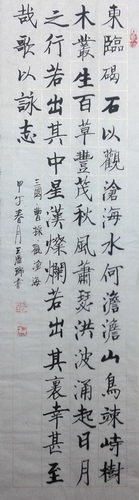 東臨碣石以觀滄海水何澹澹山島竦峙樹
木叢生百草豐茂秋風蕭瑟洪波涌起日月
之行若出其中星漢燦爛若出其裏幸甚至
哉歌以詠志
三國曹操觀滄海
春月王書